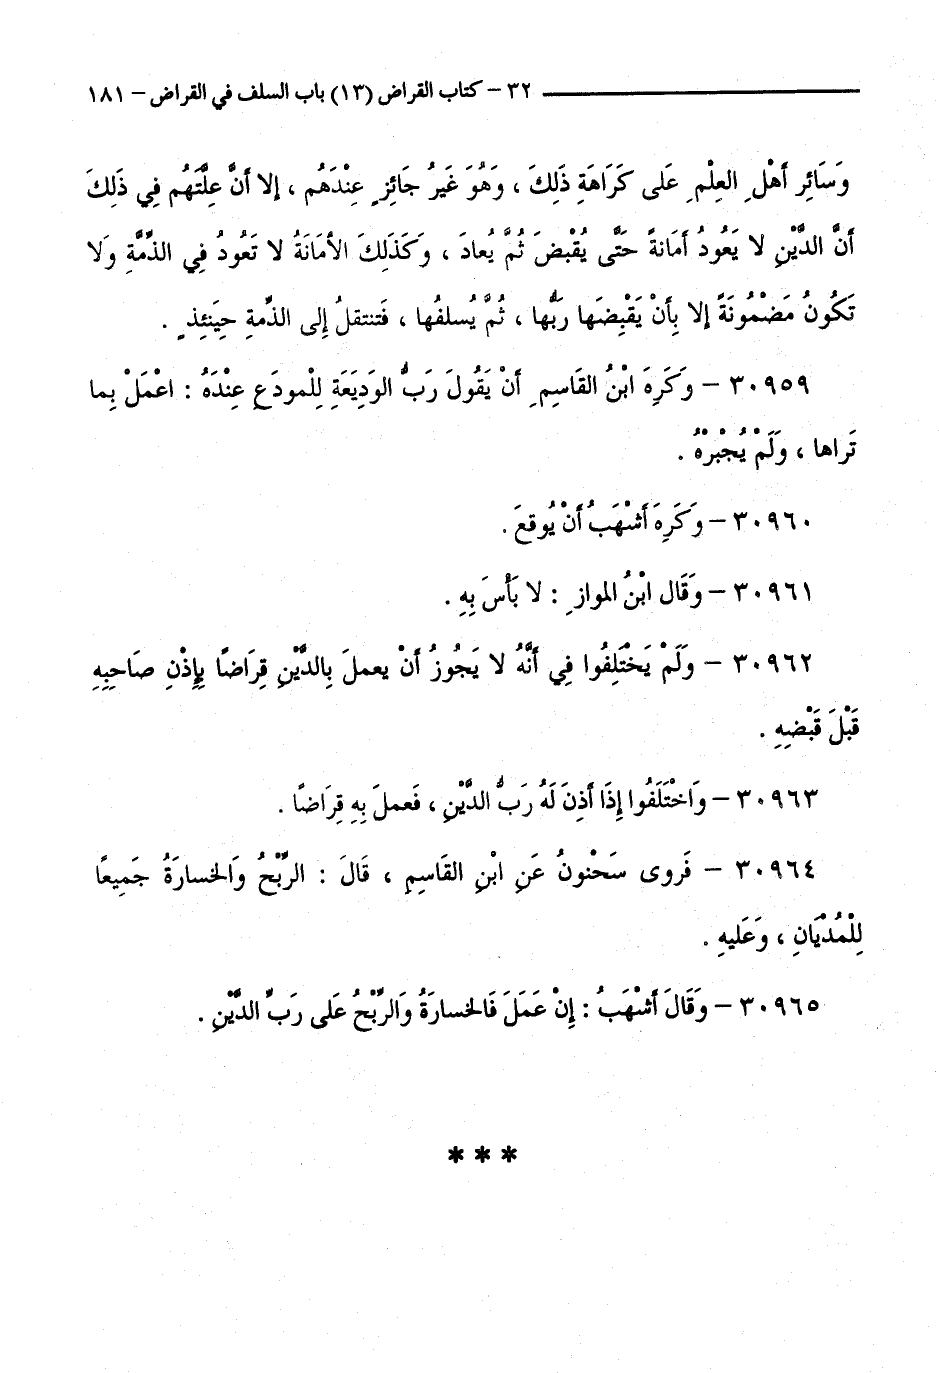 ٣٢ – كتاب القراض (١٣) باب السلف في القراض – ١٨١
وَسَائِرِ أَهْلِ العِلْمِ عَلى كَرَاهَةِ ذَلِكَ ، وَهُوَ غَيرُ جَائِزٍ عِنْدَهُم ، إلا أَنَّ عِلَّتَهُم فِي ذَلِكَ
أَنَّ الدَّيْنِ لا يَعُودُ أَمَانةً حَتَّى يُقْبضَ ثُمَّ يُعادَ ، وَكَذَلِكَ الأمَانَةُ لا تَعُودُ فِي الذِّمَّةِ وَلا
تَكُونُ مَضْمُونَةً إلا بِأَنْ يَقْبِضَها رَبُّها ، ثُمَّ يُسلفُها ، فَتنتقلُ إِلى الذمَّةِ حِيَنئِذٍ .
٣٠٩٥٩ – وَكَرِهَ ابْنُ القَاسِمِ أَنْ يَقُولَ رَبُّ الوَدِيَعَةِ لِلْمودَعِ عِنْدَهُ : اعْمَلْ بِما
تَراها ، وَلَمْ يُجْبرْهُ .
٣٠٩٦٠ – وَكَرِهَ أَشْهَبُ أَنْ يُوقعَ .
٣٠٩٦١ – وَقَال ابْنُ الموازِ : لا بَأْسَ بِهِ .
٣٠٩٦٢ – وَلَمْ يَخْتَلِفُوا فِي أَنَّهُ لا يَجُوزُ أَنْ يعملَ بِالدَّيْنِ قِرَاضًا بِإِذْنِ صَاحِبِهِ
قَبْلَ قَبْضِهِ .
٣٠٩٦٣ – وَاخْتَلَفُوا إِذَا أَذِنَ لَهُ رَبُّ الدَّيْنِ ، فَعملَ بِهِ قِرَاضًا .
٣٠٩٦٤ – فَروى سَحْنونُ عَنِ ابْنِ القَاسِمِ ، قَالَ : الرِّبْحُ وَالخسارَةُ جَمِيعًا
لِلْمُدْيَانِ ، وَعَليهِ .
٣٠٩٦٥ – وَقَالَ أَشْهَبُ : إِنْ عَمَلَ فَالخسارَةُ وَالرِّبْحُ عَلى رَبِّ الدَّيْنِ .
* * *